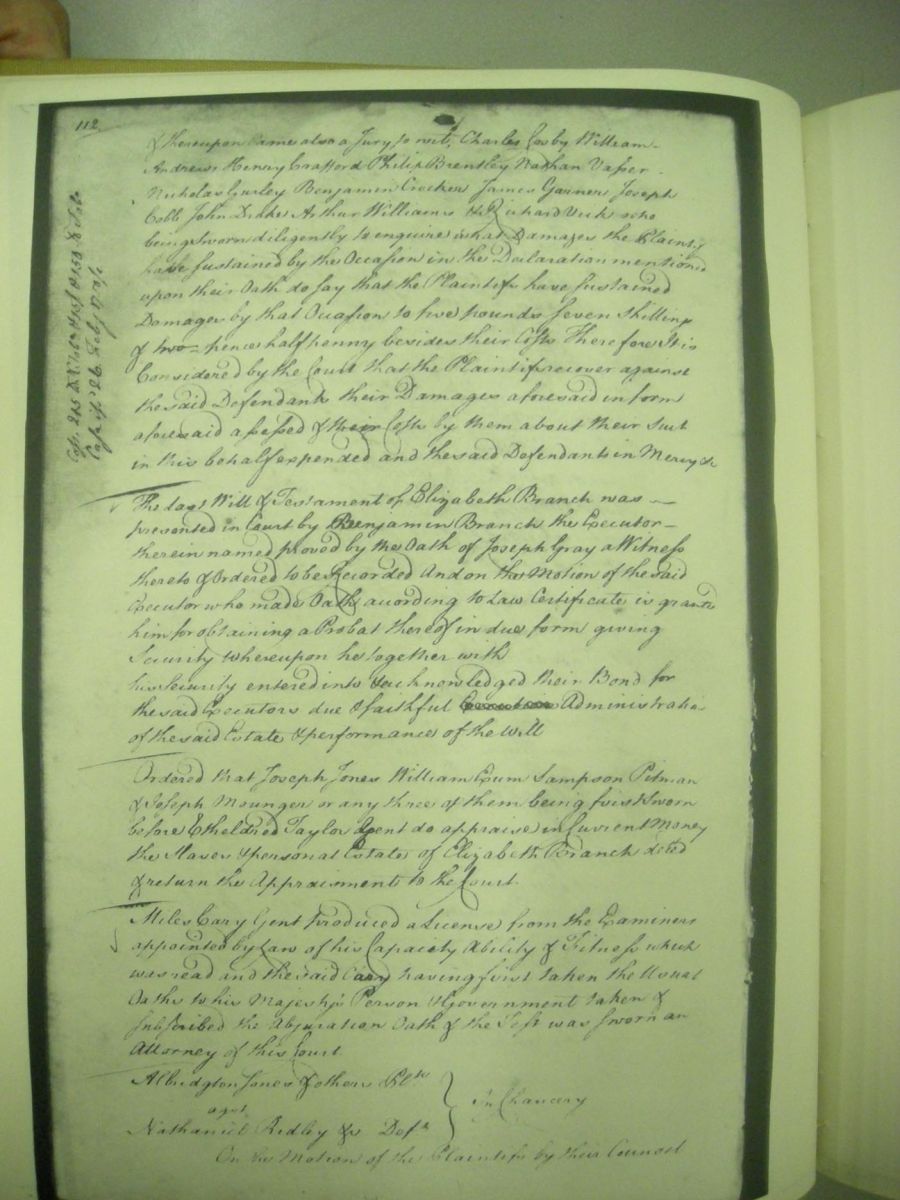 112
& thereupon came also a Jury to wit, Charles Cosby William
Andrews Henry Crafford Philip Brantley Nathan Vasser
Nicholas Gurley Benjamin Crocker James Garner Joseph
Cobb John Drake Arthur Williams & Richard Vick who
being Sworn diligently to enquire what Damages the Plaintifs
have sustained by the Occasion in the Declaration mentioned
upon their Oath do say that the Plaintifs have sustained
Damages by that Occasion to five pounds Seven Shillings
& two-pence half penny besides their Costs Therefore It is
Considered by the Court that the Plaintifs recover against
the said Defendants their Damages aforesaid in form
aforesaid assessed & their Costs by them about their Suit
in this behalf expended and the said Defendants in Mercy &c
The last Will & Testament of Elizabeth Branch was
presented in Court by Benjamin Branch the Executor
therein named proved by the Oath of Joseph Gray a Witness
thereto & Ordered to be Recorded And on the Motion of the said
Executor who made Oath according to Law Certificate is grante
him for obtaining a Probat thereof in due form giving
Security whereupon he together with
his Security entered into & acknowledged their Bond for
the said Executors due & faithful Administratio
of the said Estate & performance of the Will
Ordered that Joseph Jones William Exum Sampson Pitman
& Joseph Mounger or any three of them being first Sworn
before Etheldred Taylor Gent do appraise in Current Money
the Slaves & personal Estate of Elizabeth Branch deced
& return the Appraisment to the Court.
Miles Cary Gent produced a License from the Examiners
appointed by Law of his Capacity Ability & Fitness which
was read and the said Cary having first taken the Usual
Oaths to his Majesty's Person & Government taken &
subscribed the Abjuration Oath & the Test was sworn an
Attorney of this Court.
Albridgton Jones & others Plts
agst
Nathaniel Ridley &c Defts
In Chancery
On the Motion of the Plaintifs by their Counsel